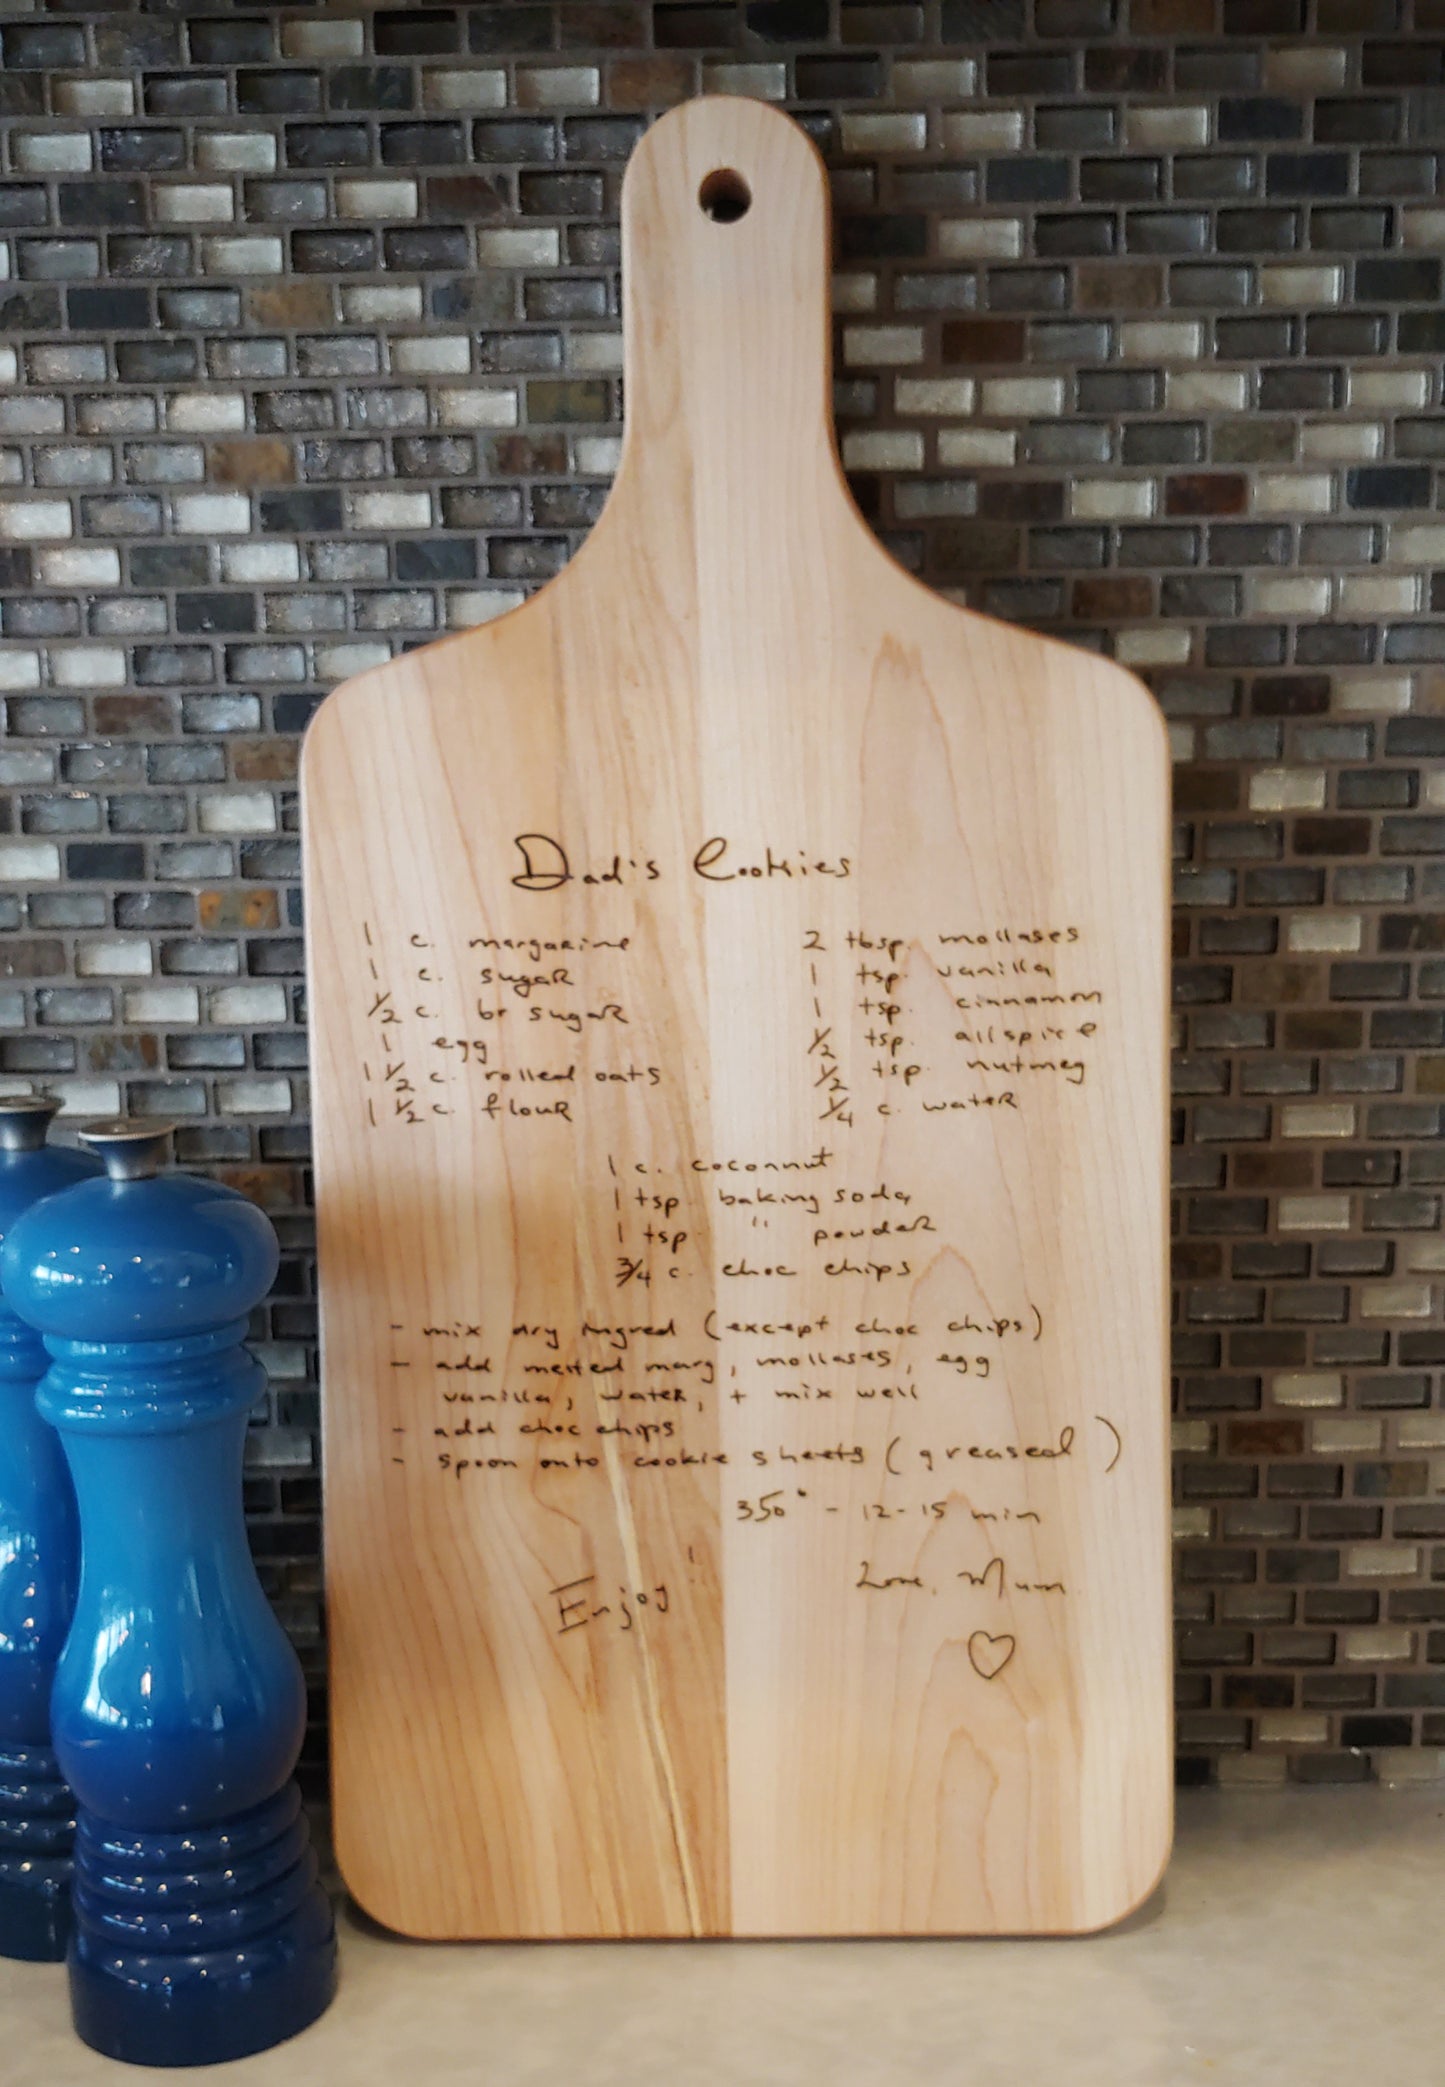 Dad's Cookies
1 c. margarine
1 c. sugar
1/2 c. br sugar
1 egg
1 1/2 c. rolled oats
1 1/2 c. flour
2 tbsp. mollases
1 tsp. vanilla
1 tsp. cinnamon
1/2 tsp. allspice
1/2 tsp. nutmeg
1/4 c. water
1 c. coconnut
1 tsp. baking soda
1 tsp " powder
3/4 c. choc chips
- mix dry ingred (except choc chips)
- add melted marg, mollases, egg
vanilla, water, + mix well
- add choc chips
- spoon onto cookie sheets (greased)
350° - 12-15 min
Enjoy!
Love, Mum